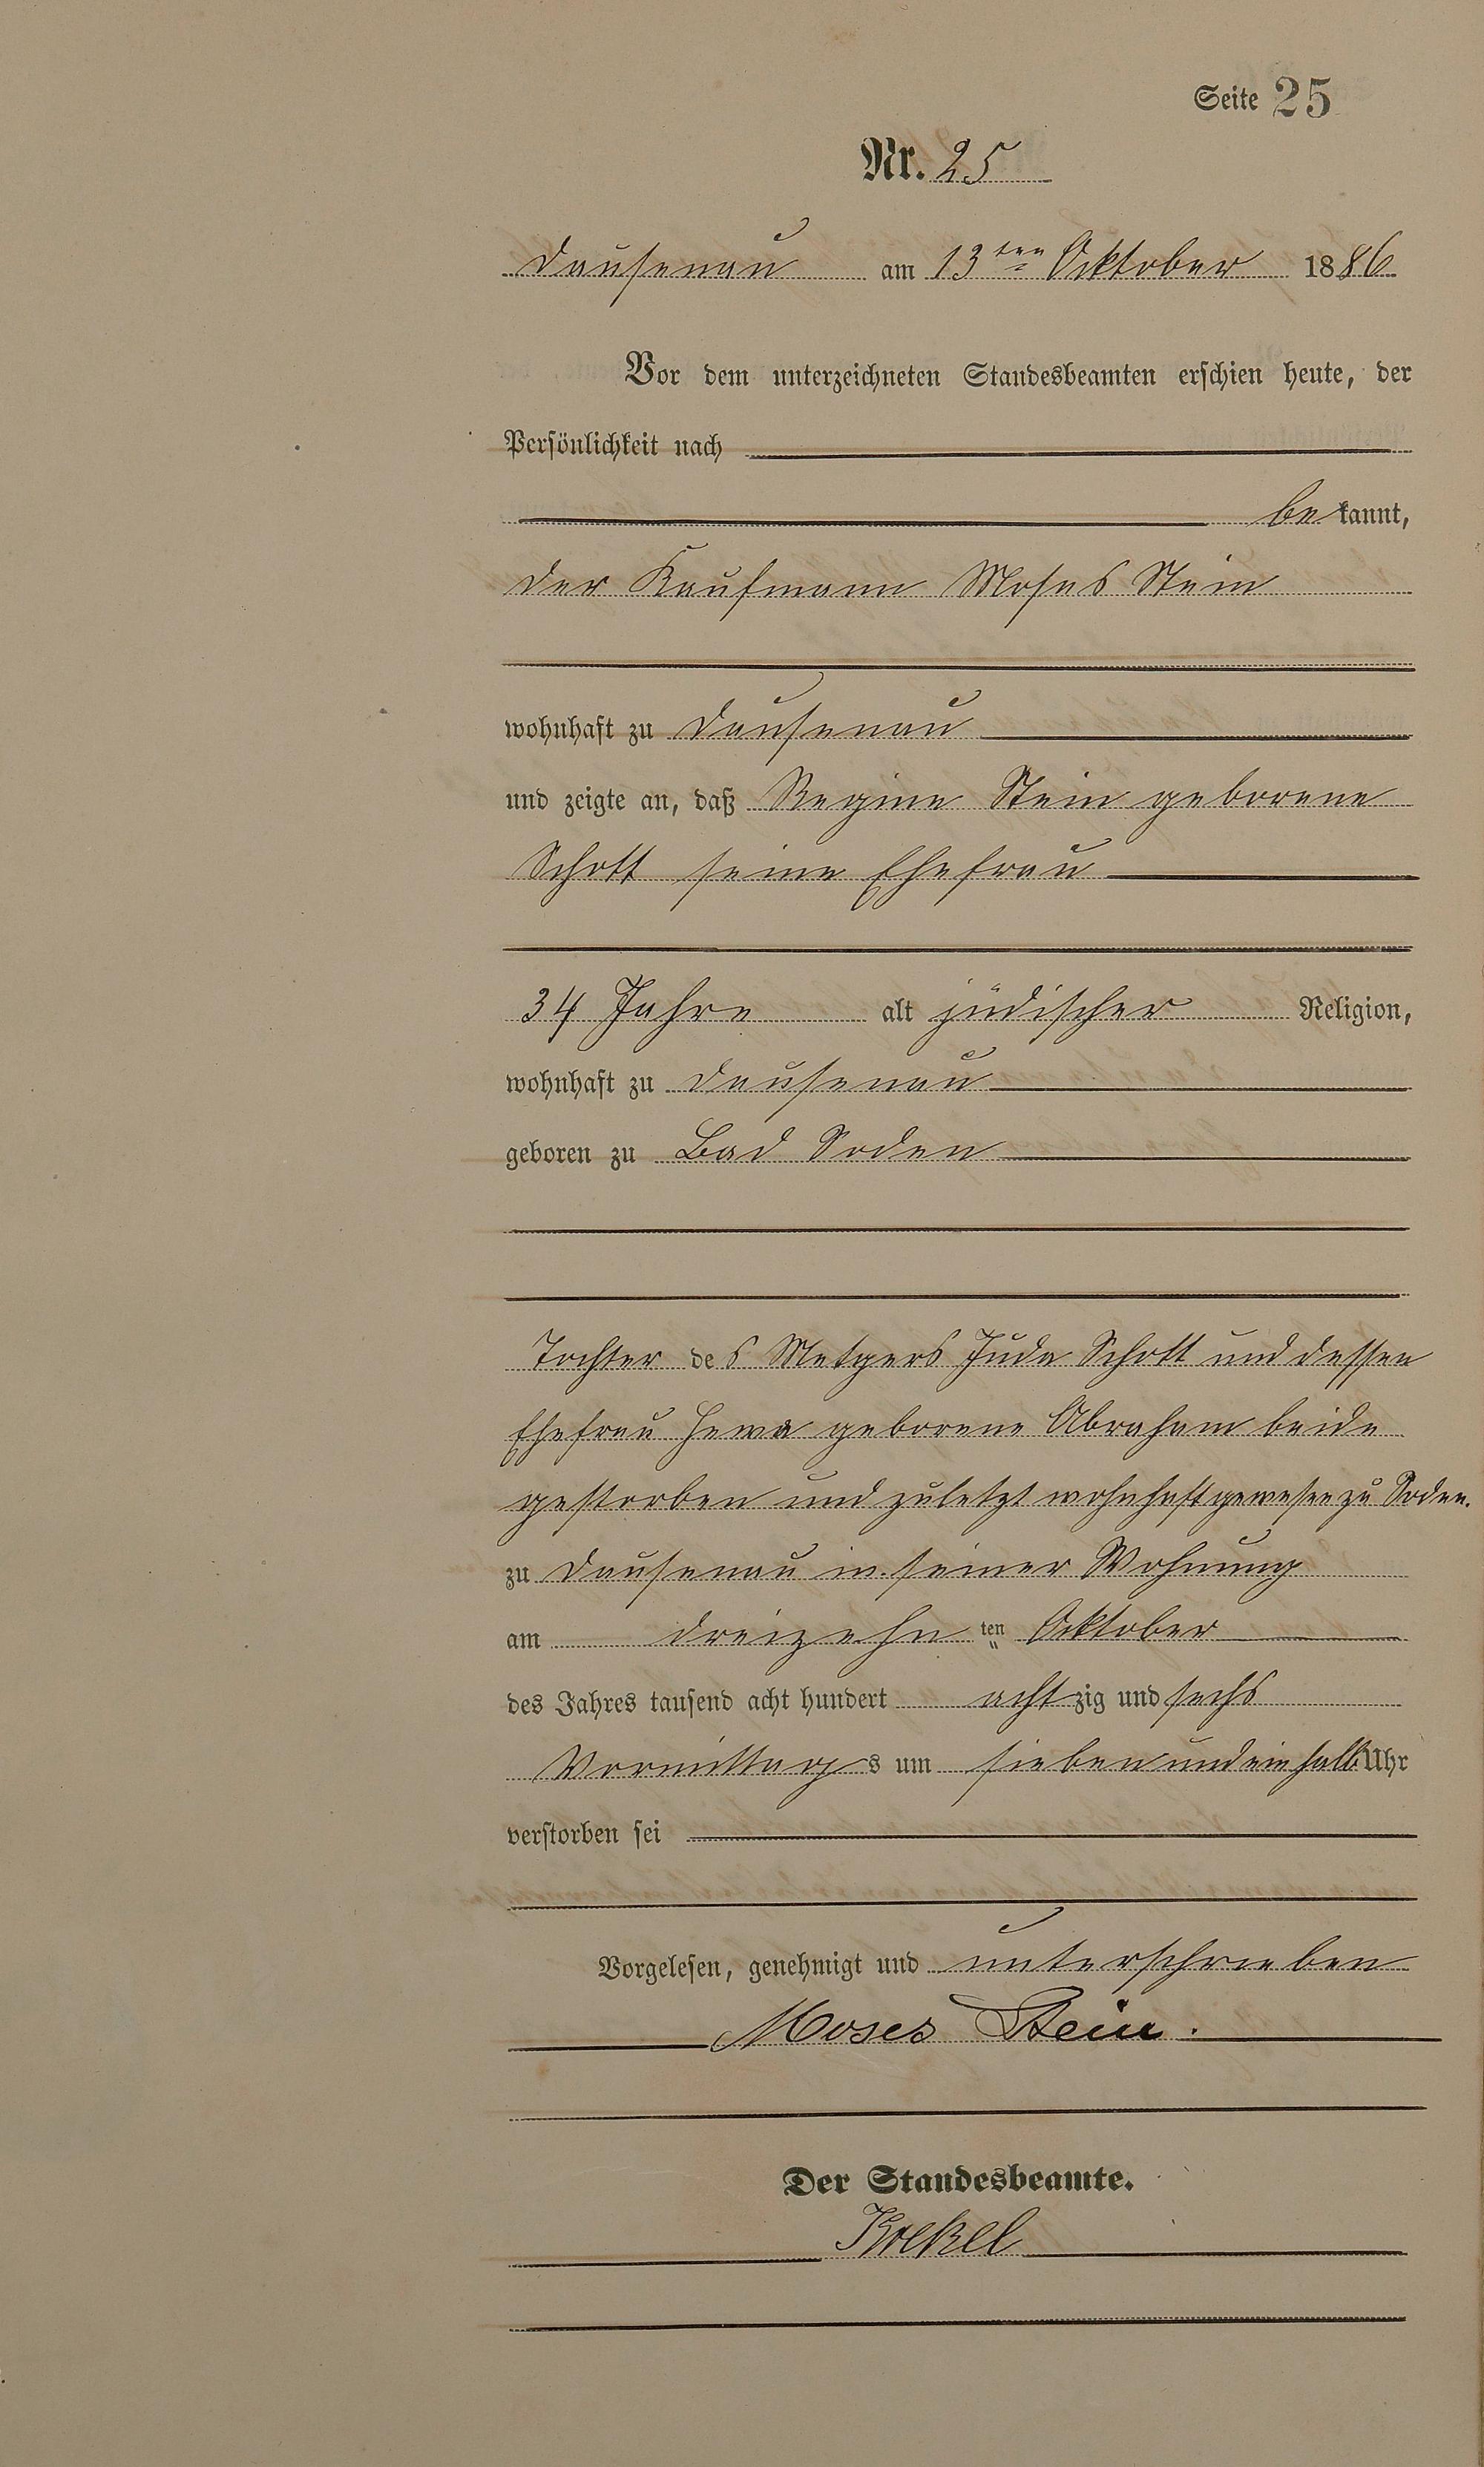 Seite 25
Nr. 25
Dausenau am 13ten Oktober 1886
Vor dem unterzeichneten Standesbeamten erschien heute, der
Persönlichkeit nach
bekannt,
der Kaufmann Moses Stein
wohnhaft zu Dausenau
und zeigte an, daß Regine Stein geborene
Schott seine Ehefrau
34 Jahre alt jüdischer Religion,
wohnhaft zu Dausenau
geboren zu Bad Soden
Tochter des Metgers Juda Schott und dessen
Ehefrau Hewa geborene Abraham beide
gestorben und zuletzt wohnhaft gewesen zu Soden.
zu Dausenau in seiner Wohnung
am dreizehnten Oktober
des Jahres tausend acht hundert achtzig und sechs
Vormittags um sieben und ein halb Uhr
verstorben sei
Vorgelesen, genehmigt und unterschrieben
Moses Stein.
Der Standesbeamte.